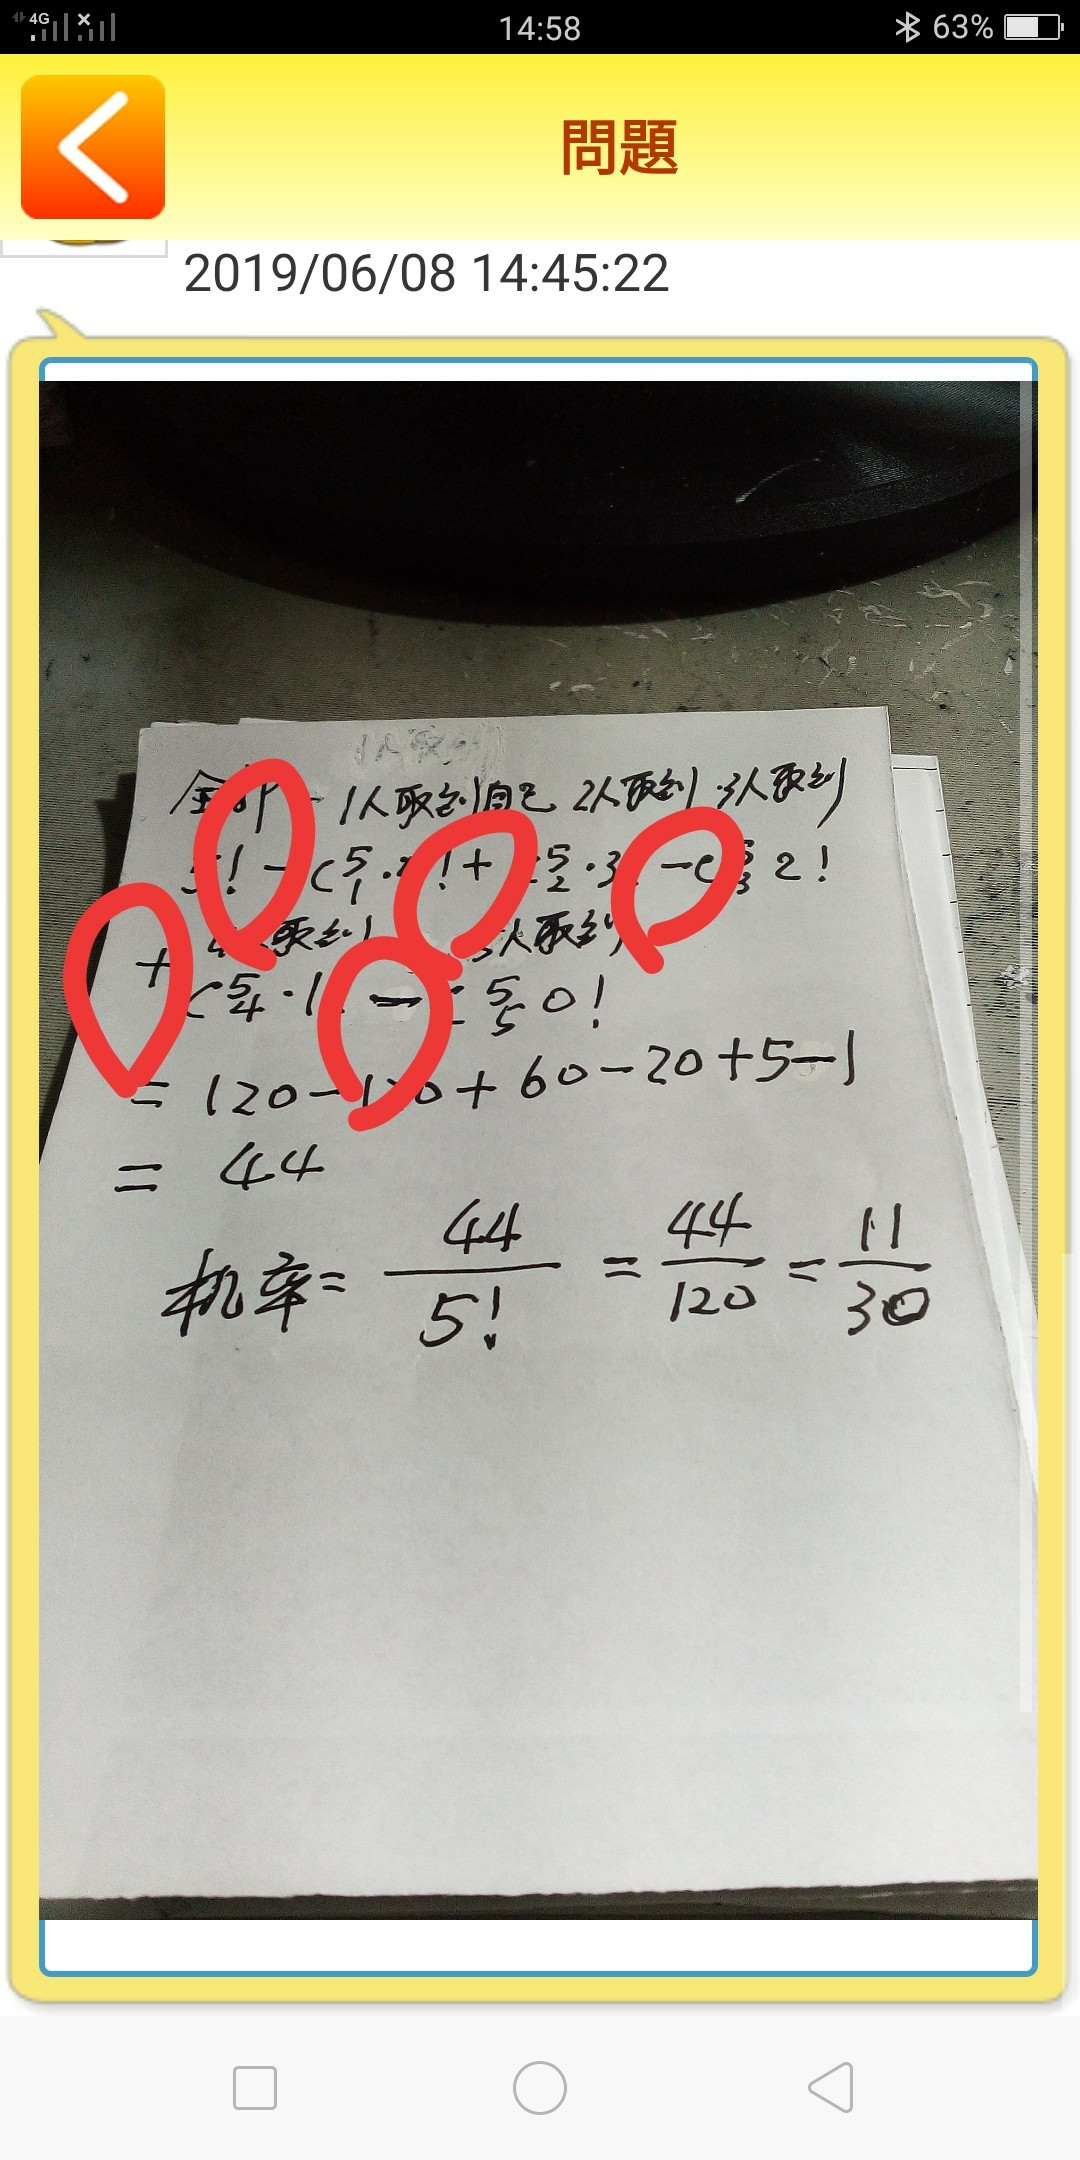 4G 14:58 63%
問題
2019/06/08 14:45:22
全部 - 1人取到自己 2人取到 3人取到
5! - C 5 1 · ! + 5 2 · 3 - C 5 3 2!
人取到 人取到
+ C 5 4 · 1 - C 5 5 0!
= 120 - 120 + 60 - 20 + 5 - 1
= 44
机率 = 44 / 5! = 44 / 120 = 11 / 30